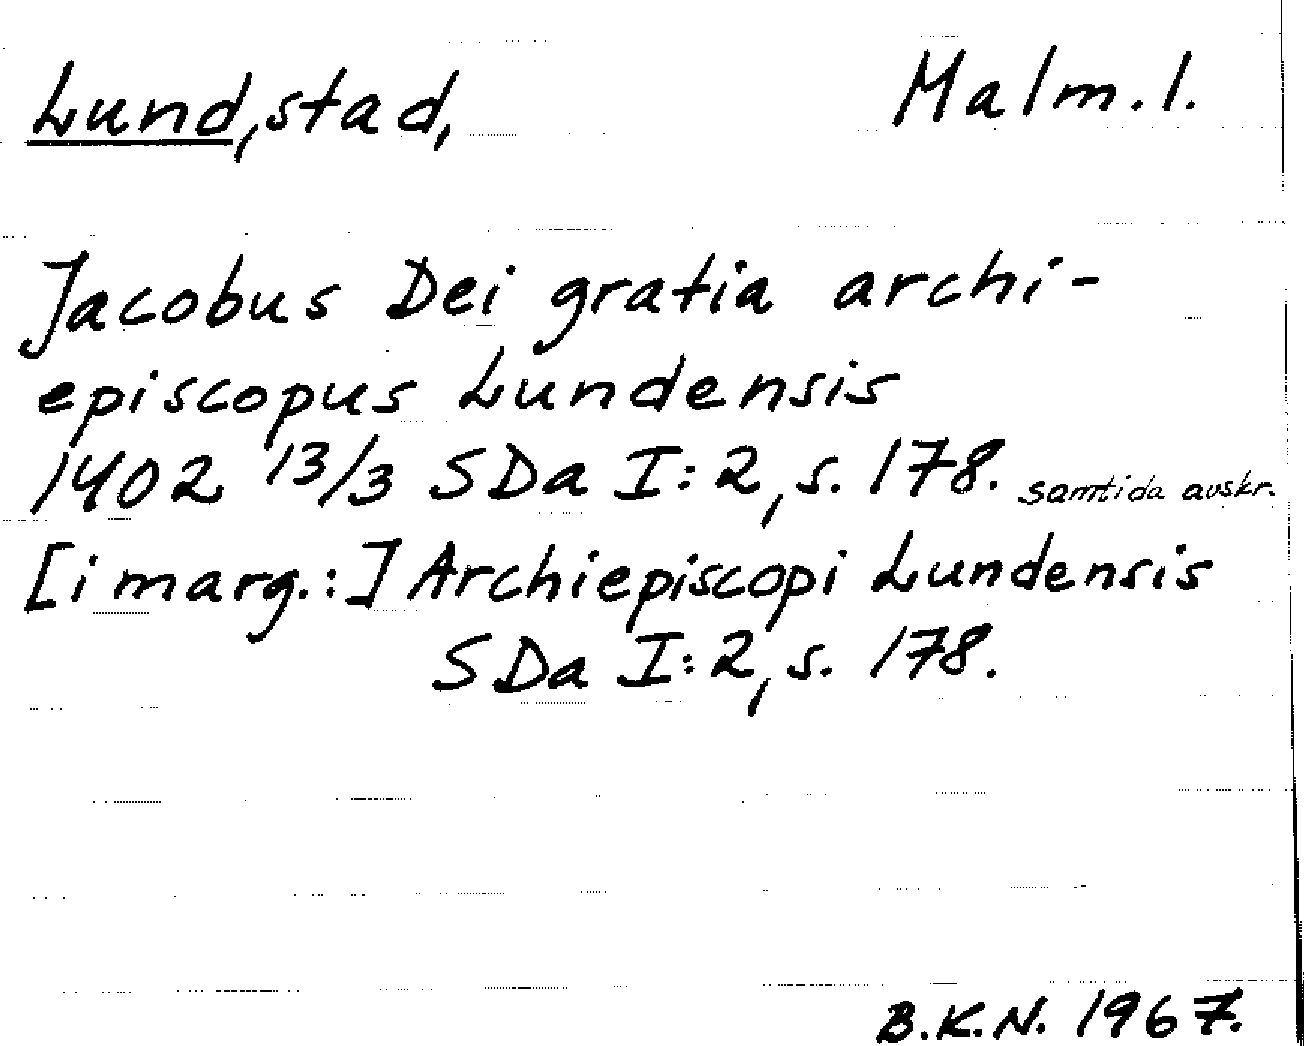 Lund, stad, Malm. l.
Jacobus Dei gratia archi-
episcopus Lundensis
1402 13/3 SDa I:2, s. 178. samtida avskr.
[i marg.:] Archiepiscopi Lundensis
SDa I:2, s. 178.
B.K.N. 1967.